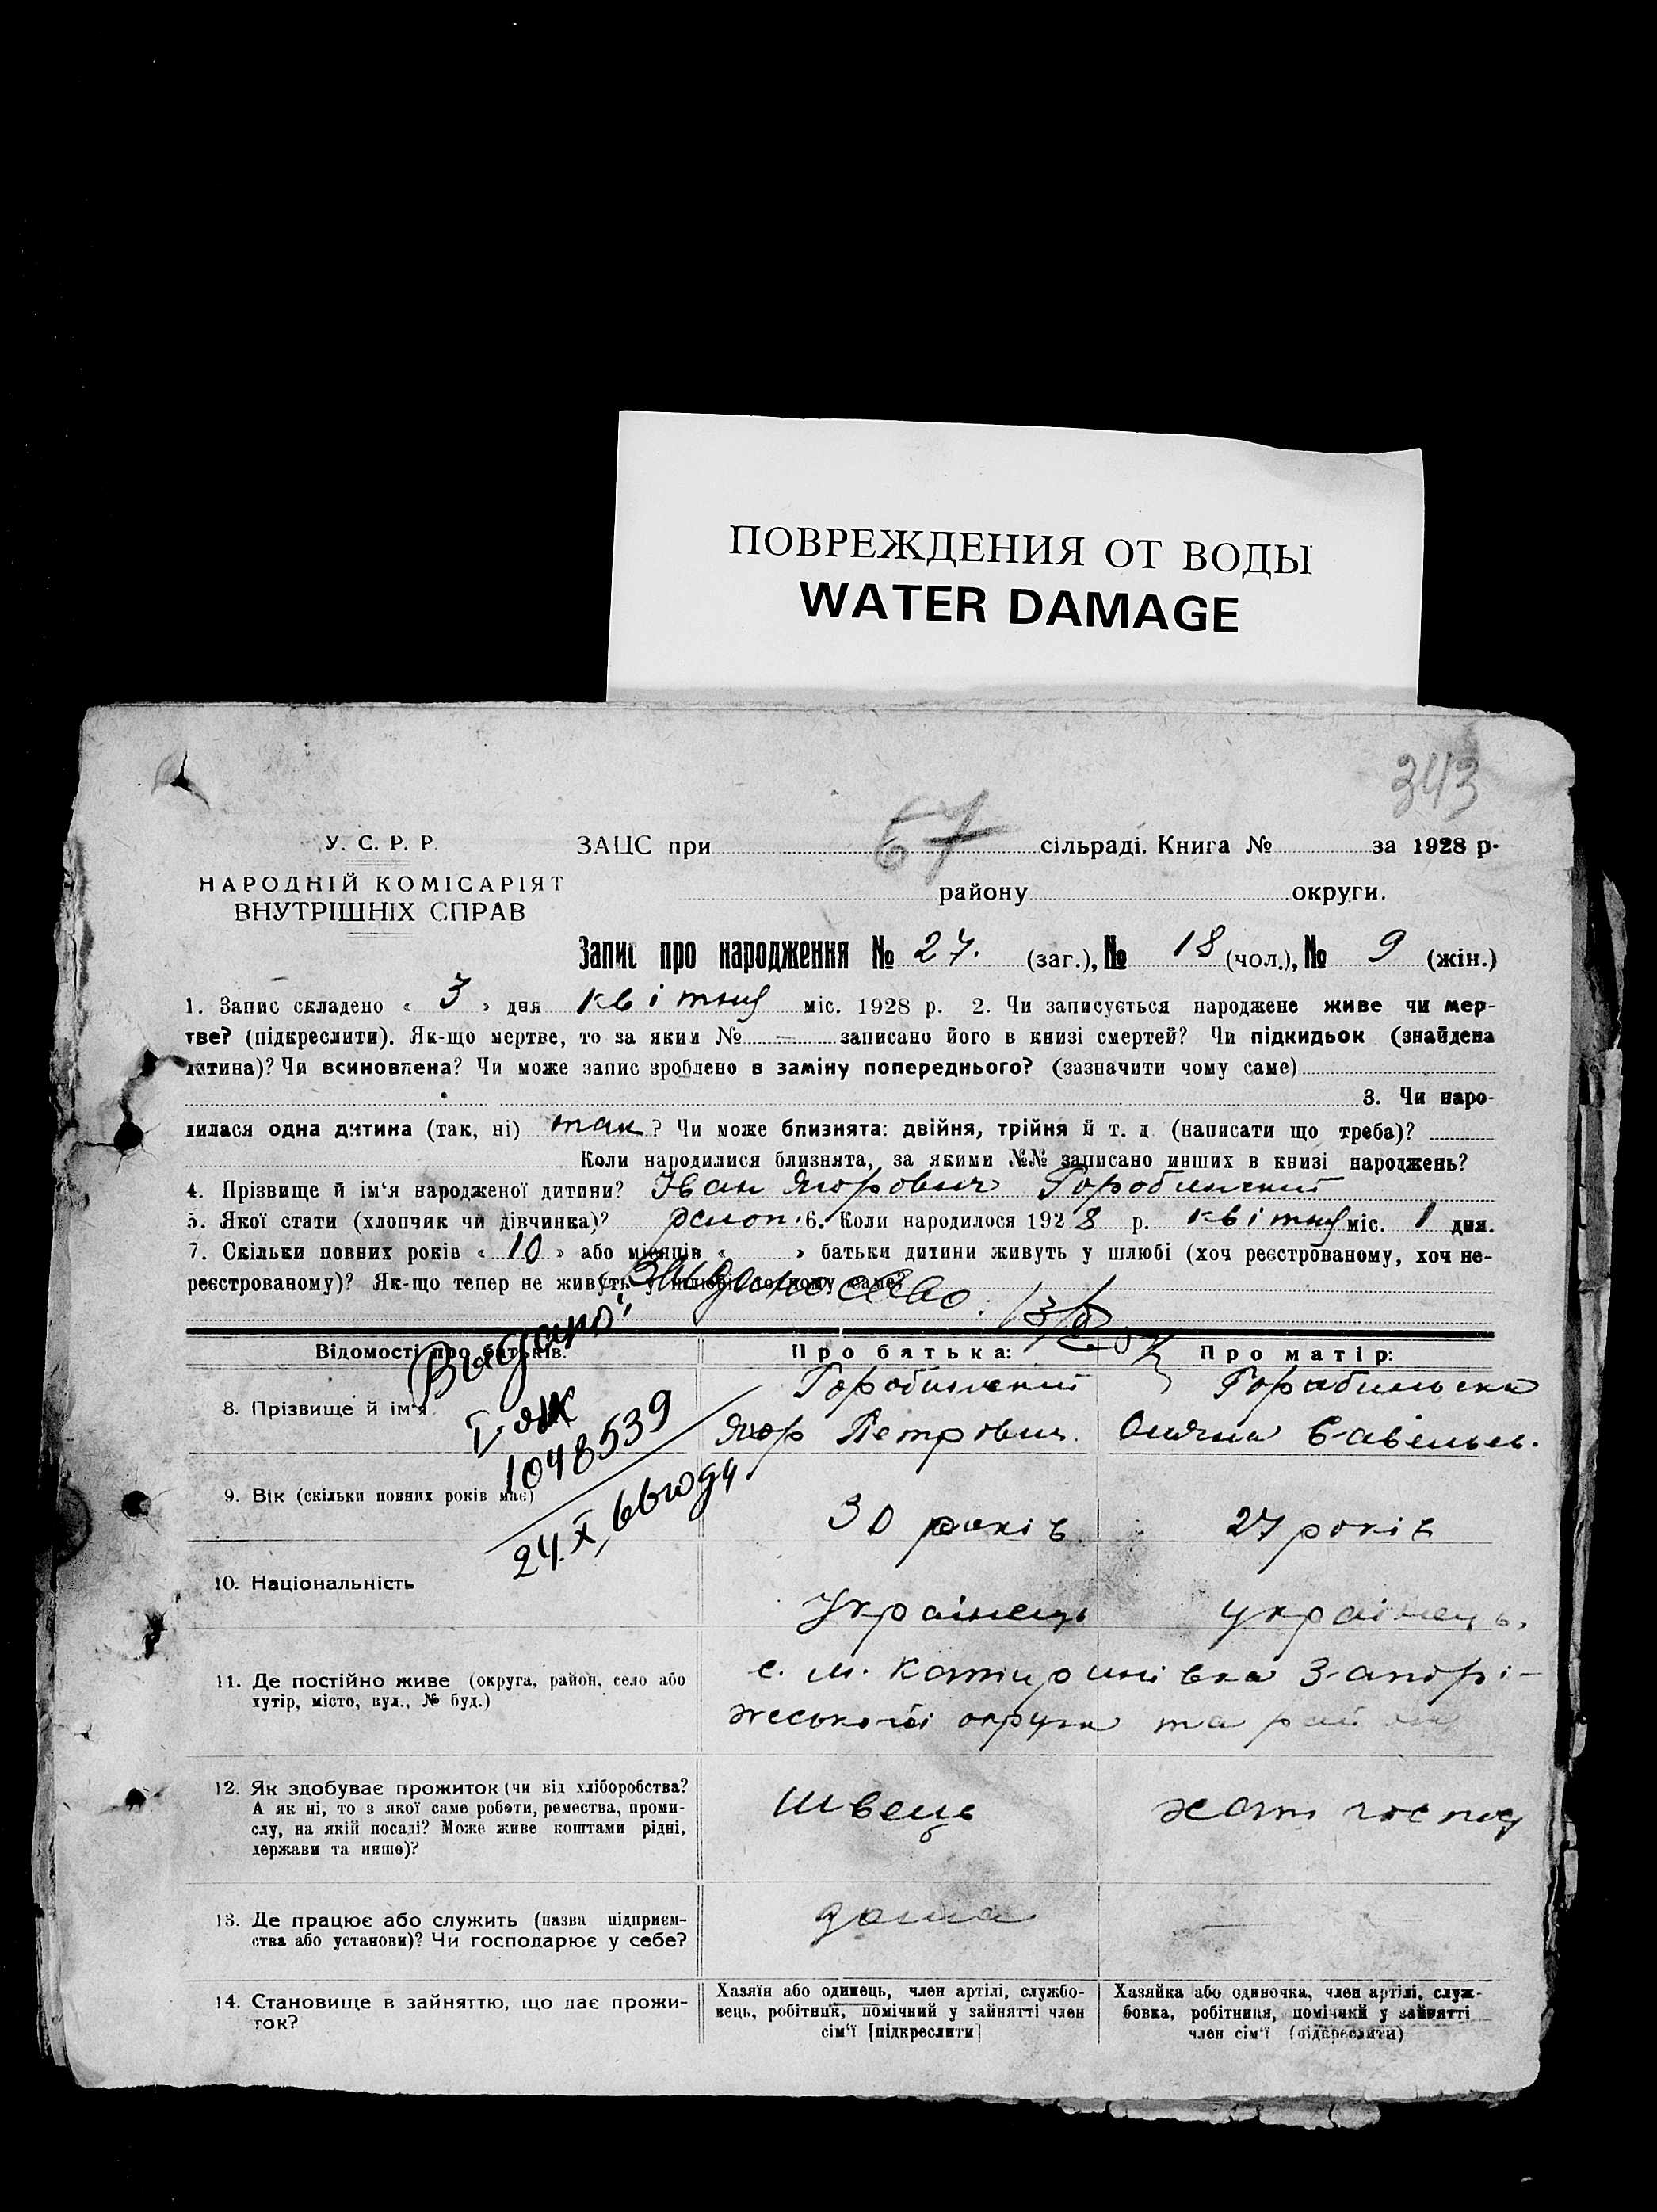 ПОВРЕЖДЕНИЯ ОТ ВОДЫ
WATER DAMAGE
343
У. С. Р. Р.
НАРОДНІЙ КОМІСАРІЯТ
ВНУТРІШНІХ СПРАВ
ЗАЦС при 67 сільраді. Книга № за 1928 р.
району округи.
Запис про народження № 27. (заг.), № 18 (чол.), № 9 (жін.)
1. Запис складено « 3 » дня квітня міс. 1928 р. 2. Чи записується народжене живе чи мер-
тве? (підкреслити). Як-що мертве, то за яким № — записано його в книзі смертей? Чи підкидьок (знайдена
дитина)? Чи всиновлена? Чи може запис зроблено в заміну попереднього? (зазначити чому саме)
3. Чи наро-
дилася одна дитина (так, ні) так? Чи може близнята: двійня, трійня й т. д (написати що треба)?
Коли народилися близнята, за якими №№ записано инших в книзі народжень?
4. Прізвище й ім'я народженої дитини? Іван Ягорович
5. Якої стати (хлопчик чи дівчинка)? 6. Коли народилося 1928 р. квітня міс. 1 дня.
7. Скільки повних років « 10 » або місяців « » батьки дитини живуть у шлюбі (хоч реєстрованому, хоч не-
реєстрованому)? Як-що тепер не живуть у шлюбі,
Відомості про батьків. Про батька: Про матір:
1048539
24.X.
8. Прізвище й ім'я
Ягор Петрович.
9. Вік (скільки повних років має) 30 років 27 років
10. Національність
Українець українець.
11. Де постійно живе (округа, район, село або
хутір, місто, вул., № буд.)
с. м. Катиринівка Запорі-
жеської округи та району
12. Як здобуває прожиток (чи від хліборобства?
А як ні, то з якої саме роботи, ремества, проми-
слу, на якій посаді? Може живе коштами рідні,
держави та инше)?
Швець хатн господ
13. Де працює або служить (назва підприєм-
ства або установи)? Чи господарює у себе?
дома —
14. Становище в зайняттю, що дає прожи-
ток?
Хазяїн або одинець, член артілі, службо-
вець, робітник, помічний у зайнятті член
сім'ї [підкреслити]
Хазяйка або одиночка, член артілі, служ-
бовка, робітниця, помічний у зайнятті
член сім'ї (підкреслити)